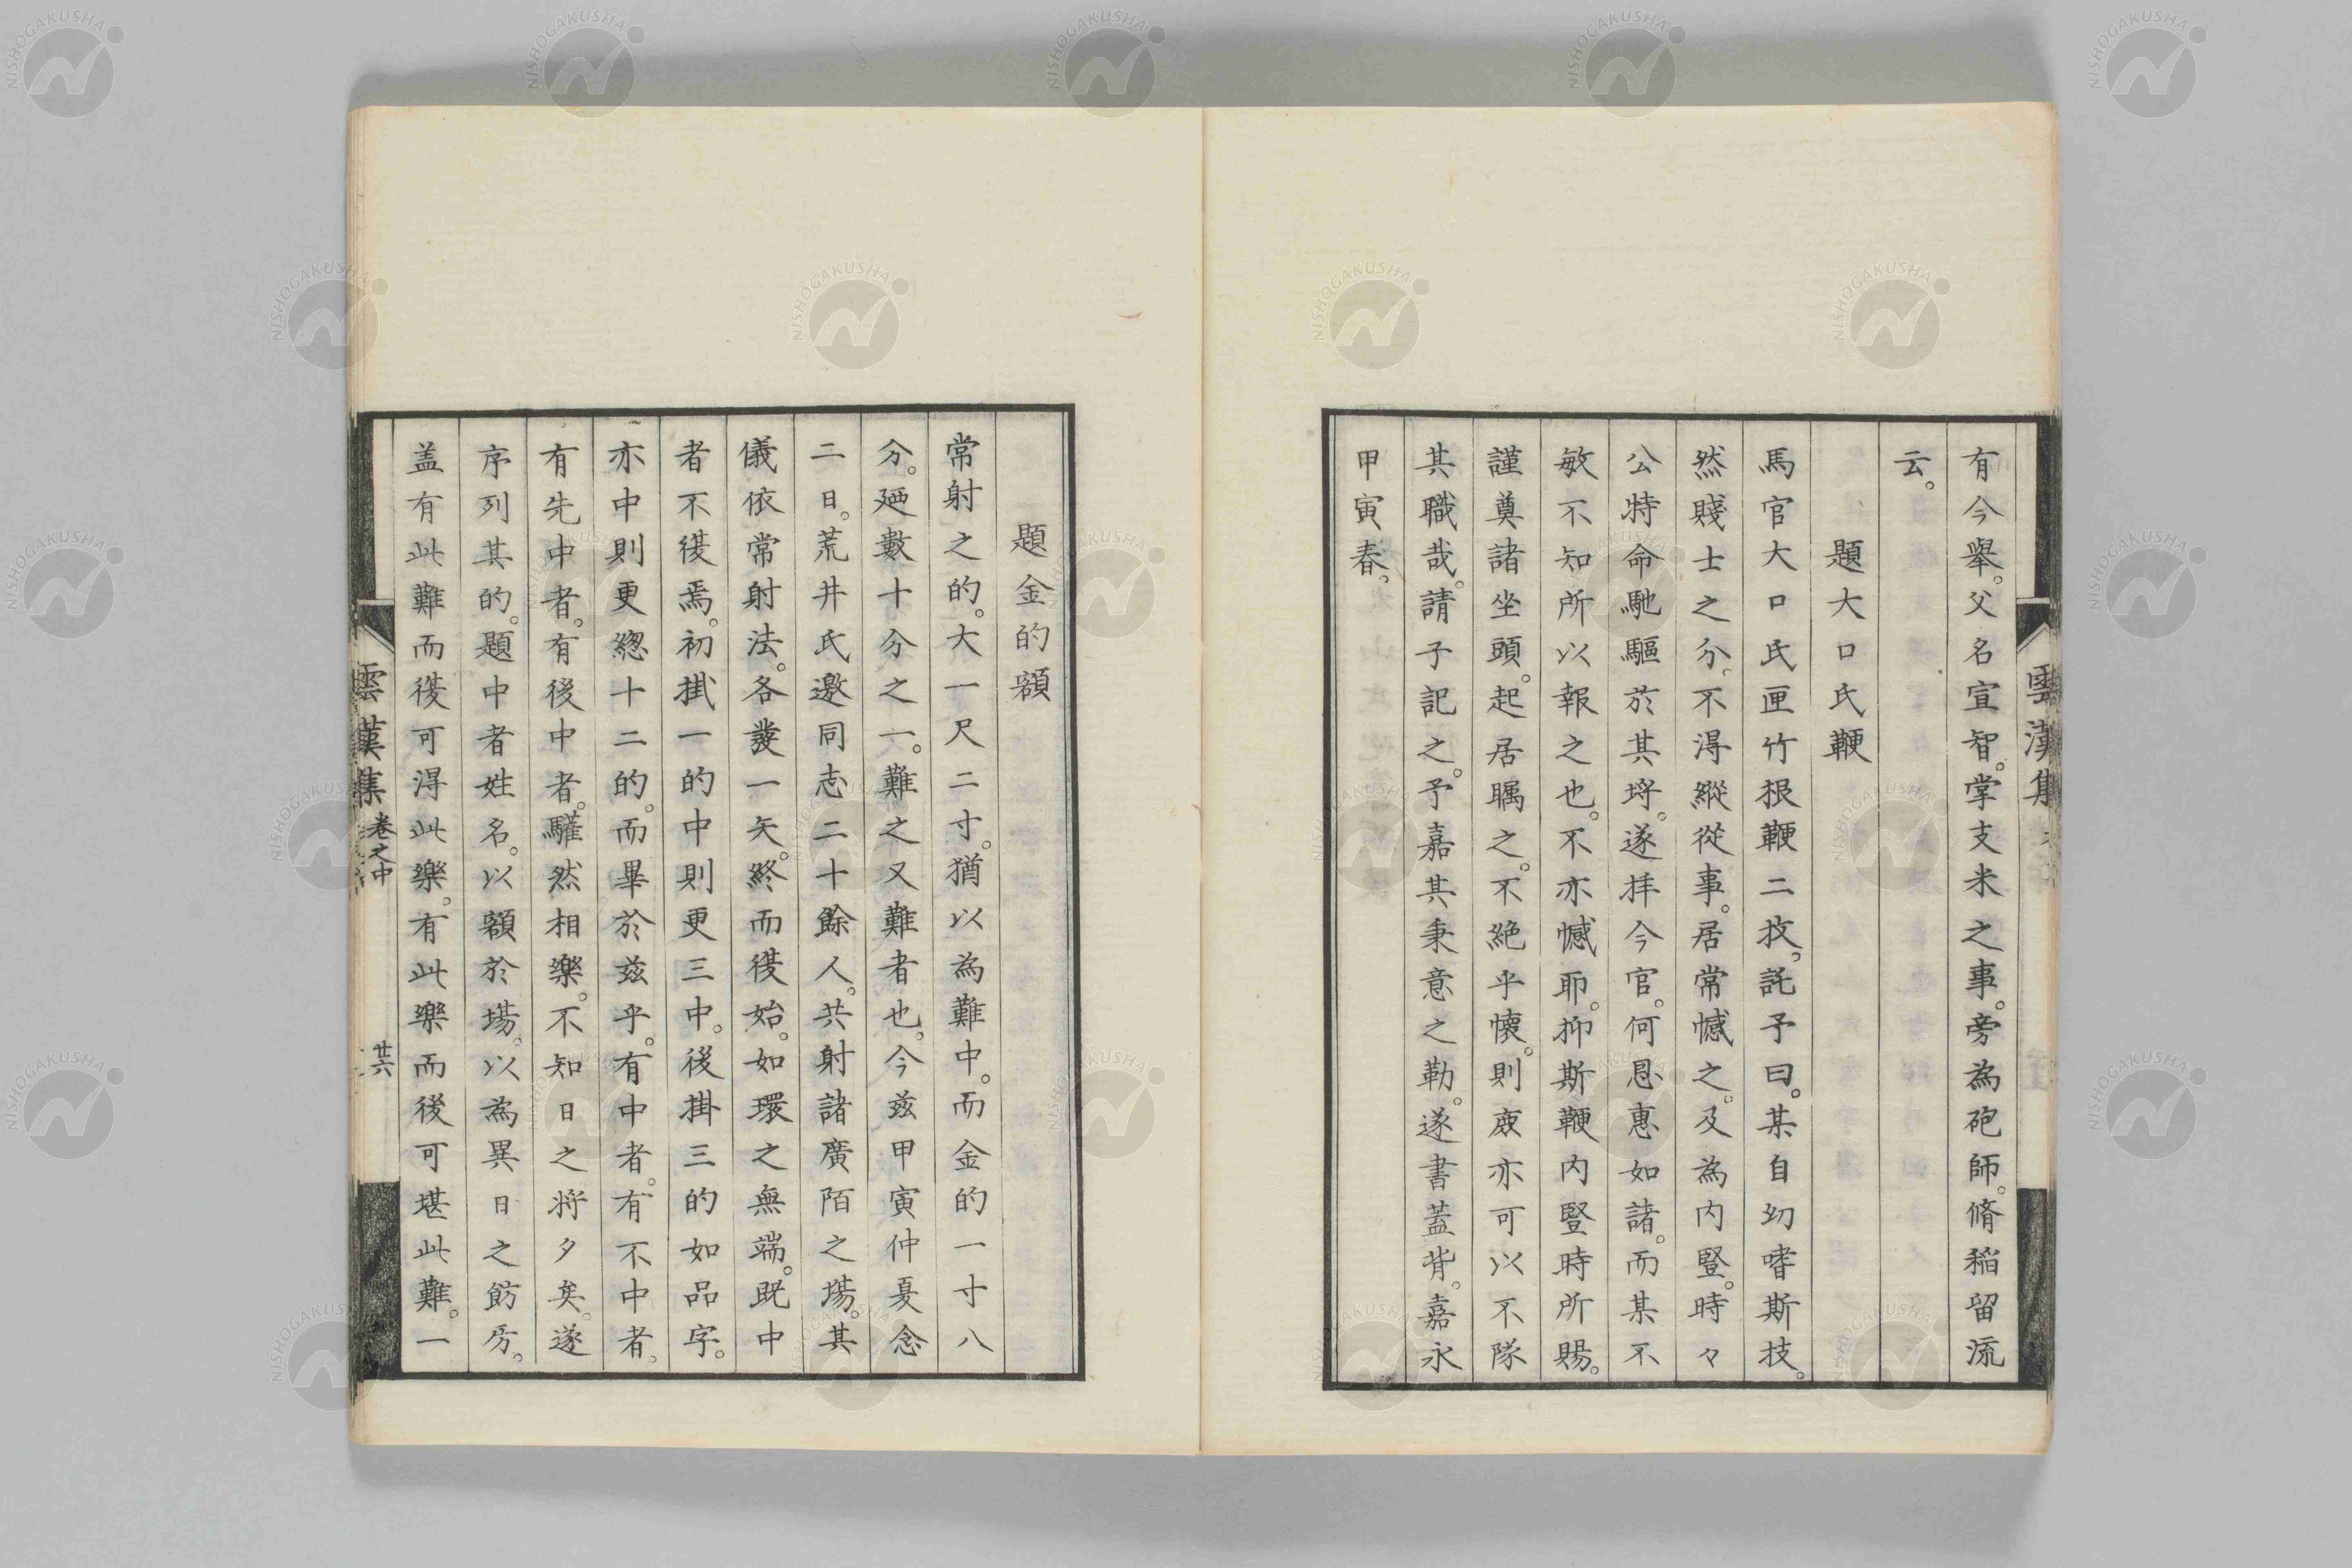 有今擧。父名宣智。掌支米之事。旁為砲師。脩稲留流
云。
題大口氏鞭
馬官大口氏匣竹根鞭二枚。託予曰。某自幼嗜斯技。
然賤士之分。不得縱從事。居常憾之。及為内豎。時々
公特命馳驅於其埒。遂拝今官。何恩惠如諸。而某不
敏不知所以報之也。不亦憾耶。抑斯鞭内豎時所賜。
謹奠諸坐頭。起居瞩之。不絶乎懐。則庻亦可以不隊
其職哉。請子記之。予嘉其秉意之勤。遂書蓋背。嘉永
甲寅春。
雲漢集
題金的額
常射之的。大一尺二寸。猶以為難中。而金的一寸八
分。廼數十分之一。難之又難者也。今兹甲寅仲夏念
二日。荒井氏邀同志二十餘人。共射諸廣陌之場。其
儀依常射法。各發一矢。終而復始。如環之無端。既中
者不復焉。初掛一的中則更三中。後掛三的如品字。
亦中則更總十二的。而畢於兹乎。有中者。有不中者。
有先中者。有後中者。驩然相樂。不知日之将夕矣。遂
序列其的。題中者姓名。以額於場。以為異日之飭厉。
盖有此難而後可得此樂。有此樂而後可堪此難。一
雲漢集 卷之中 廿六